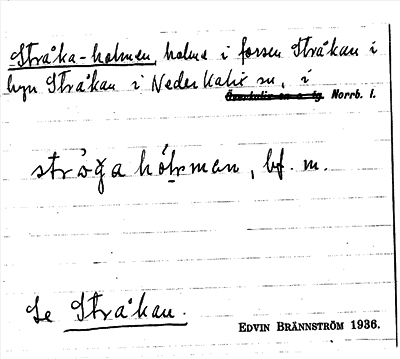 Stråka-holmen, holme i forsen Stråkan i
byn Stråkan i Nederkalix sn, i
Överkalix sn o. tg. Norrb. l.
bf. m.
Se Stråkan.
EDVIN BRÄNNSTRÖM 1936.